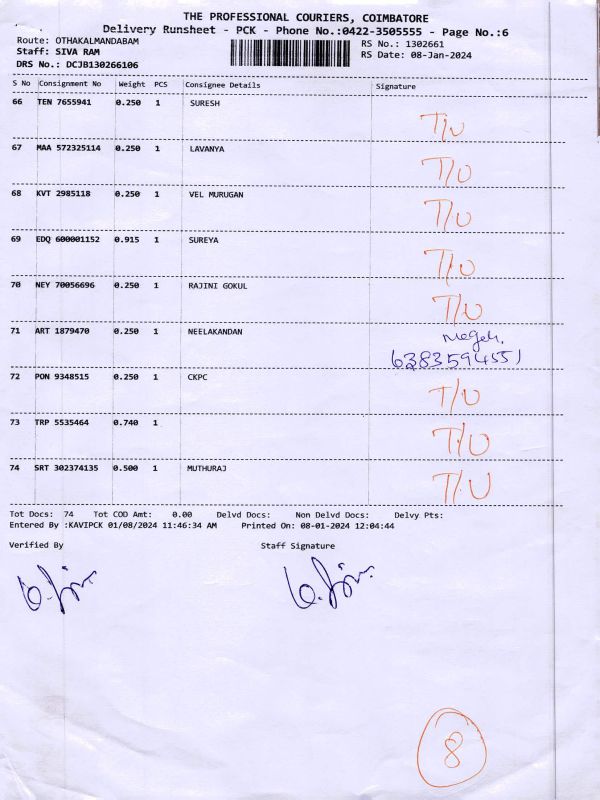 THE PROFESSIONAL COURIERS, COIMBATORE
Delivery Runsheet - PCK - Phone No.:0422-3505555 - Page No.:6
Route: OTHAKALMANDABAM RS No.: 1302661
Staff: SIVA RAM RS Date: 08-Jan-2024
DRS No.: DCJB130266106
S No Consignment No Weight PCS Consignee Details Signature
66 TEN 7655941 0.250 1 SURESH T/U
67 MAA 572325114 0.250 1 LAVANYA T/U
68 KVT 2985118 0.250 1 VEL MURUGAN T/U
69 EDQ 600001152 0.915 1 SUREYA T/U
70 NEY 70056696 0.250 1 RAJINI GOKUL T/U
71 ART 1879470 0.250 1 NEELAKANDAN
6383594551
72 PON 9348515 0.250 1 CKPC T/U
73 TRP 5535464 0.740 1 T/U
74 SRT 302374135 0.500 1 MUTHURAJ T/U
Tot Docs: 74 Tot COD Amt: 0.00 Delvd Docs: Non Delvd Docs: Delvy Pts:
Entered By :KAVIPCK 01/08/2024 11:46:34 AM Printed On: 08-01-2024 12:04:44
Verified By Staff Signature
8